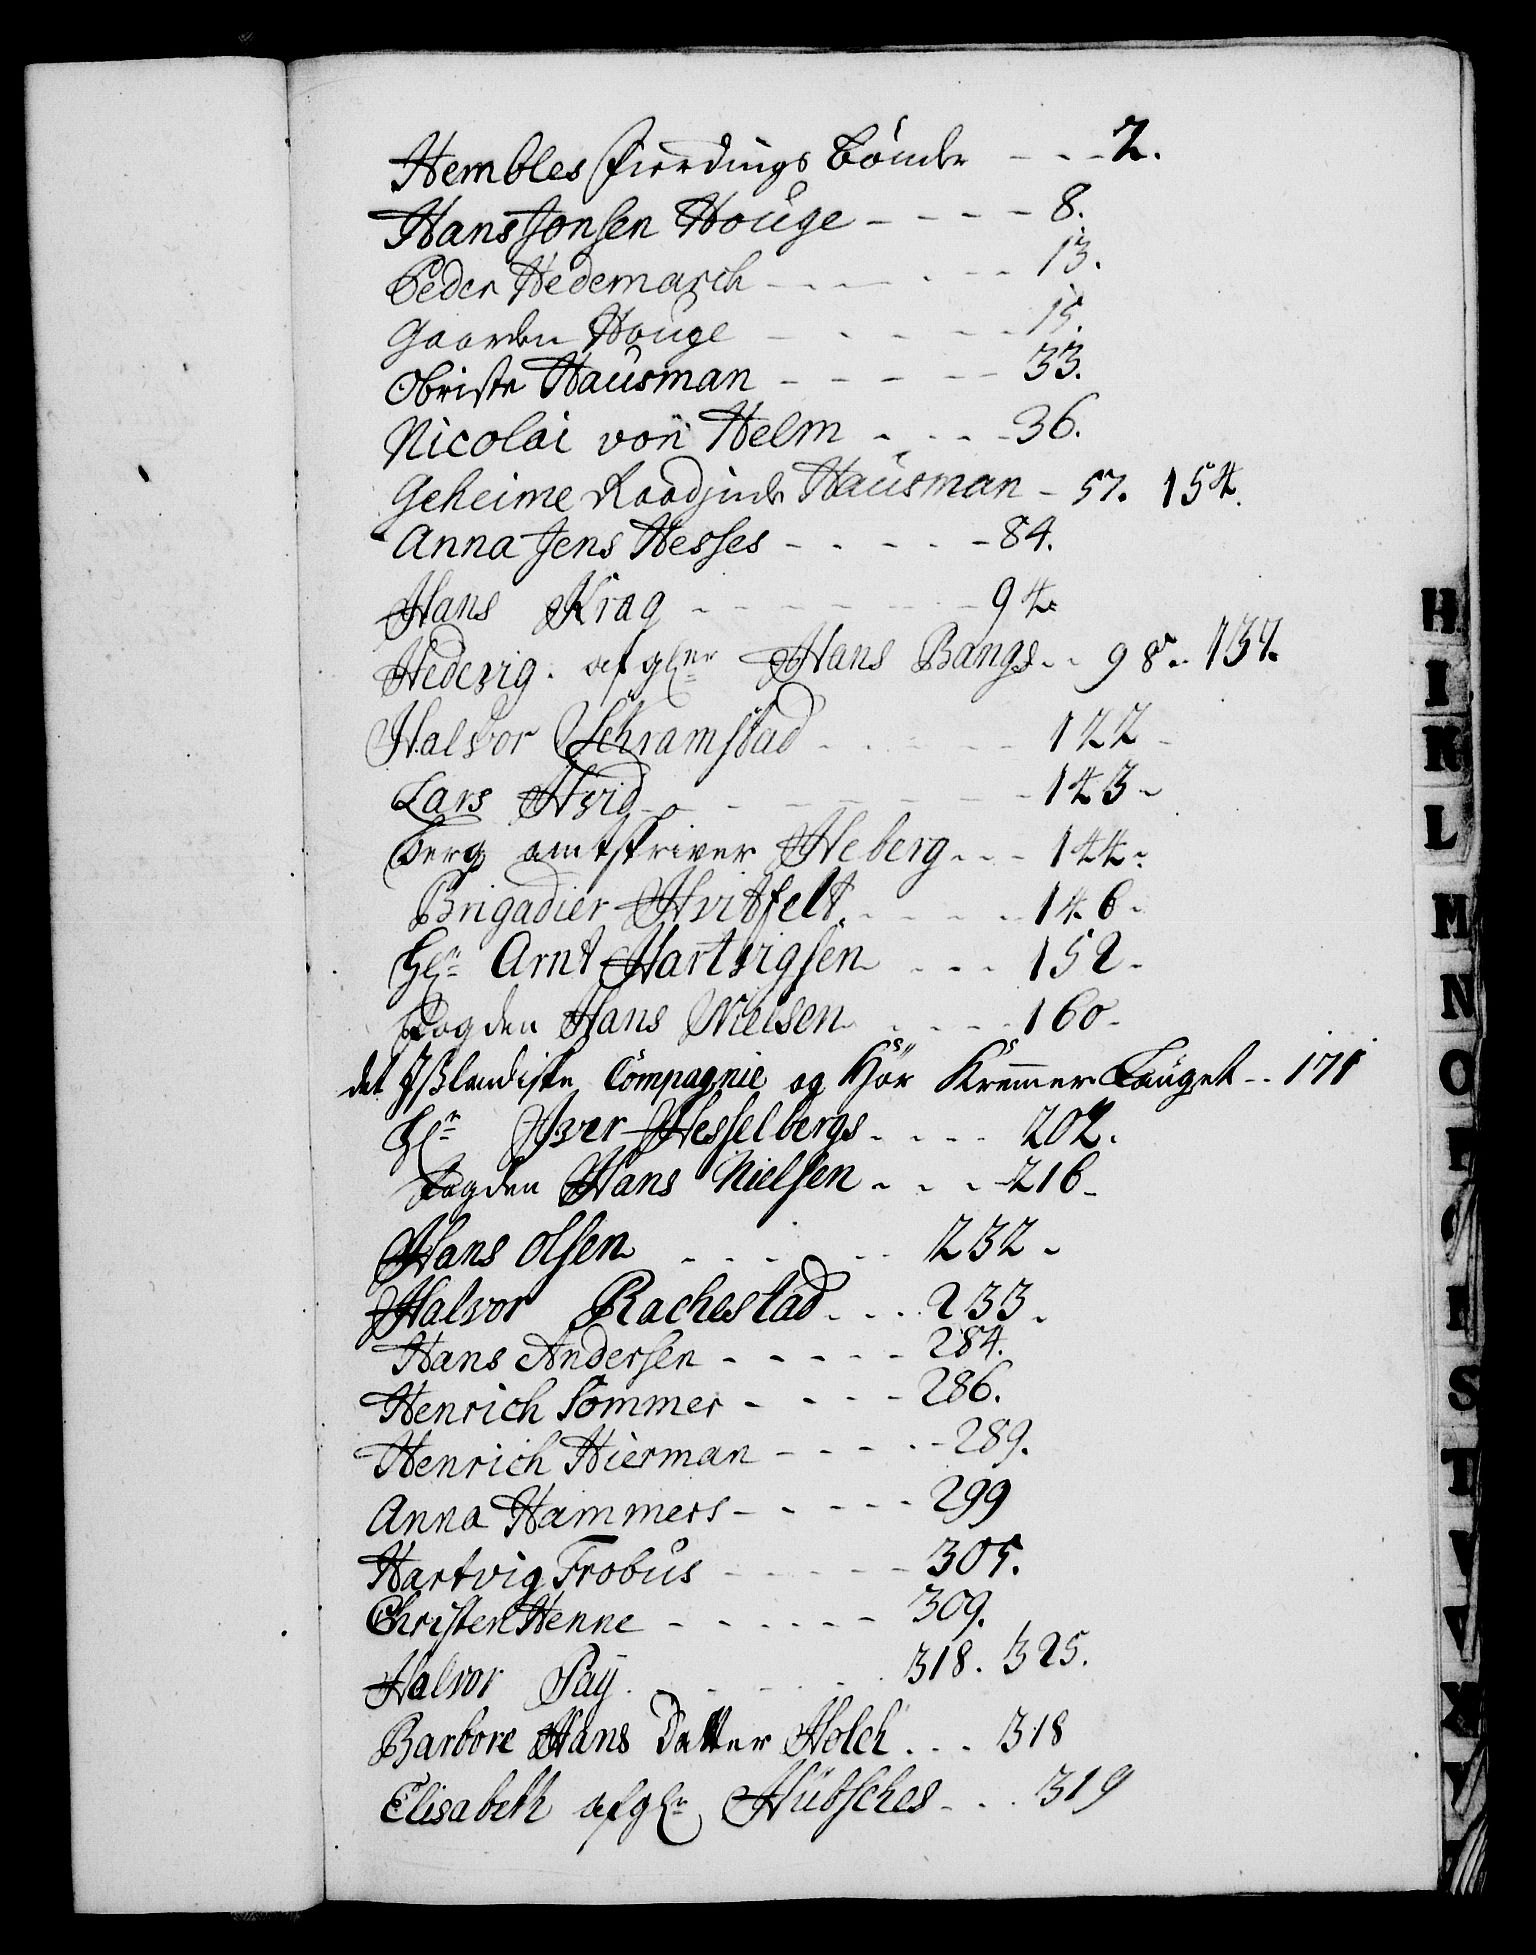 Hembles fierdings bönder - - - 2.
Hans Jonsen Houge - - - - 8.
Peder Hedemarch - - - - - - 13.
Gaarden Houge - - - - - 15.
Obriste Hausman - - - - - 33.
Nicolai von Helm - - - - 36.
Geheime Raadjnde Hausman - 57. 154.
Anna Jens Hesses - - - - - 84.
Hans Krag - - - - - - 94.
Hedevig. afgl:ner Hans Bangs - - 98. 137.
Halvor Schramstad - - - - - 122 -
Lars Hvid - - - - - - - 143 -
berg amtskriver Heberg - - - 144 -
Brigadier Hvitfelt - - - - - 146 -
Hr: Arnt Hartvigsen - - - 152 -
fogden Hans Nielsen - - - - 160 -
det Jßlandiske Compagnie og Hör Kremmer Lauget - - 171
Hr: Iver Hesselbergs - - - - 202.
fogden Hans Nielsen - - - - 216 -
Hans olsen - - - - - - 232 -
Halvor Rachestad - - - 233.
Hans Andersen - - - - - 284.
Henrich Sommer - - - - 286.
Henrich Hierman - - - - - 289.
Anna Hammers - - - - - 299
Hartvig Frobus - - - - - 305.
Christen Henne - - - - - - 309.
Halvor Pay - - - - - - 318. 325.
Barbore Hans Datter Holch - - - 318
Elisabeth afgl:r Hübsches - - - 319
H
I
K
L
M
N
O
P
Q
R
S
T
V
V
X
Y